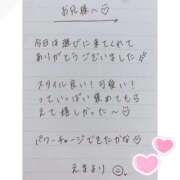 お兄様へ♡
今日は遊びに来てくれて
ありがとうございました!!
スタイル良い!可愛い!
っていっぱい褒めてもら
えて嬉しかった〜♡
パワーチャージできたかな☺
えまより☺